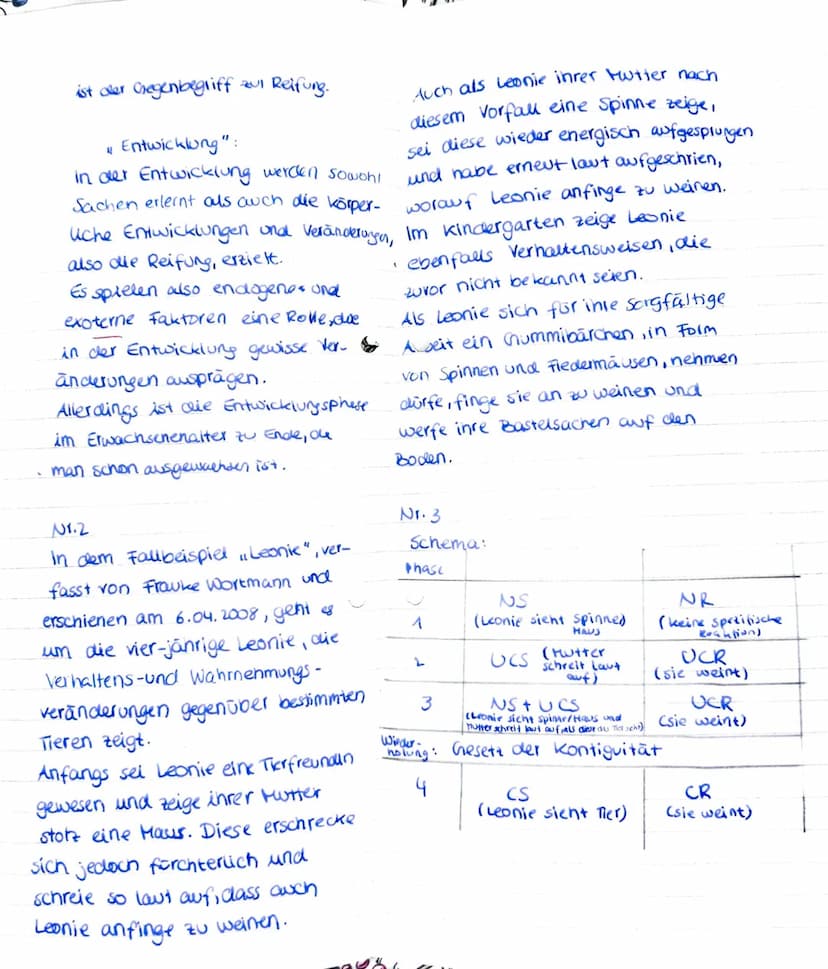 ist der Gegenbegriff zur Reifung.
„Entwicklung":
In der Entwicklung werden sowohl
Sachen erlernt als auch die körper-
liche Entwicklungen und Veränderungen,
also die Reifung, erzielt.
Es spielen also endogene und
exoterne Faktoren eine Rolle, die
in der Entwicklung gewisse Ver-
änderungen ausprägen.
Allerdings ist die Entwicklungsphase
im Erwachsenenalter zu Ende, da
man schon ausgewachsen ist.
Nr.2
In dem Fallbeispiel „Leonie", ver-
fasst von Frauke Wortmann und
erschienen am 6.04.2008, geht es
um die vier-jährige Leonie, die
Verhaltens- und Wahrnehmungs-
veränderungen gegenüber bestimmten
Tieren zeigt.
Anfangs sei Leonie eine Tierfreundin
gewesen und zeige ihrer Mutter
stolz eine Maus. Diese erschrecke
sich jedoch fürchterlich und
schreie so laut auf, dass auch
Leonie anfinge zu weinen.
Auch als Leonie ihrer Mutter nach
diesem Vorfall eine Spinne zeige,
sei diese wieder energisch aufgesprungen
und habe erneut laut aufgeschrien,
worauf Leonie anfinge zu weinen.
Im Kindergarten zeige Leonie
ebenfalls Verhaltensweisen, die
zuvor nicht bekannt seien.
Als Leonie sich für ihre sorgfältige
ein Gummibärchen, in Form
von Spinnen und Fledermäusen, nehmen
dürfe, finge sie an zu weinen und
werfe ihre Bastelsachen auf den
Boden.
Nr. 3
Schema:
Phase
1 NS NR
(Leonie sieht Spinne/ Maus) (keine spezifische Reaktion)
2 UCS (Mutter schreit laut auf) UCR (sie weint)
3 NS + UCS UCR
(Leonie sieht Spinne/Maus und Mutter schreit laut auf, als (sie weint)
Wieder-holung: Gesetz der Kontiguität
4 CS CR
(Leonie sieht Tier) (sie weint)